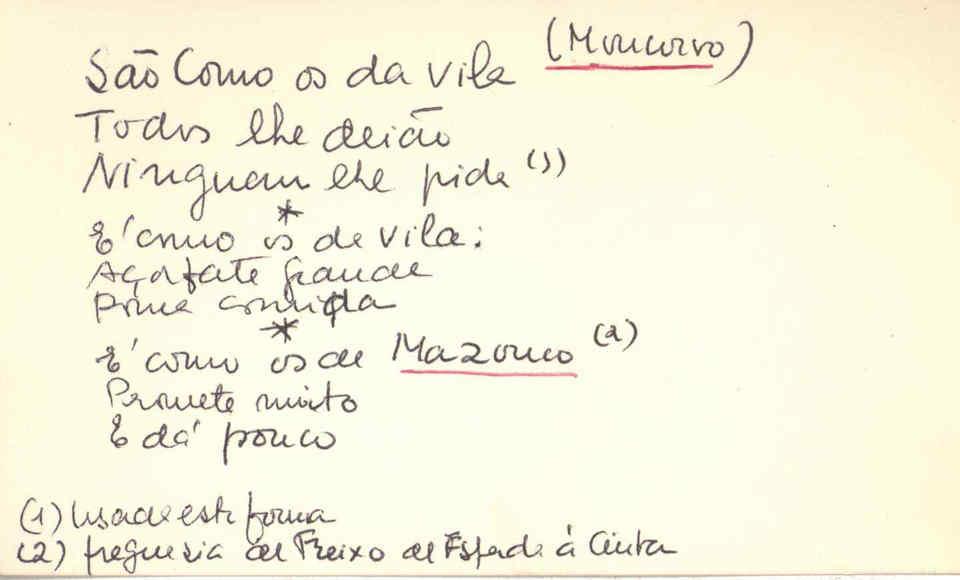 São Como os da vila (Moncorvo)
Todos lhe deião
Ninguam lhe pida (1)
*
E' como os de vila:
Açafate grande
Pouca comida
*
E' como os de Mazouco (2)
Promete muito
E dá pouco
(1) Usada esta forma
(2) freguesia de Freixo de Espada à Cinta